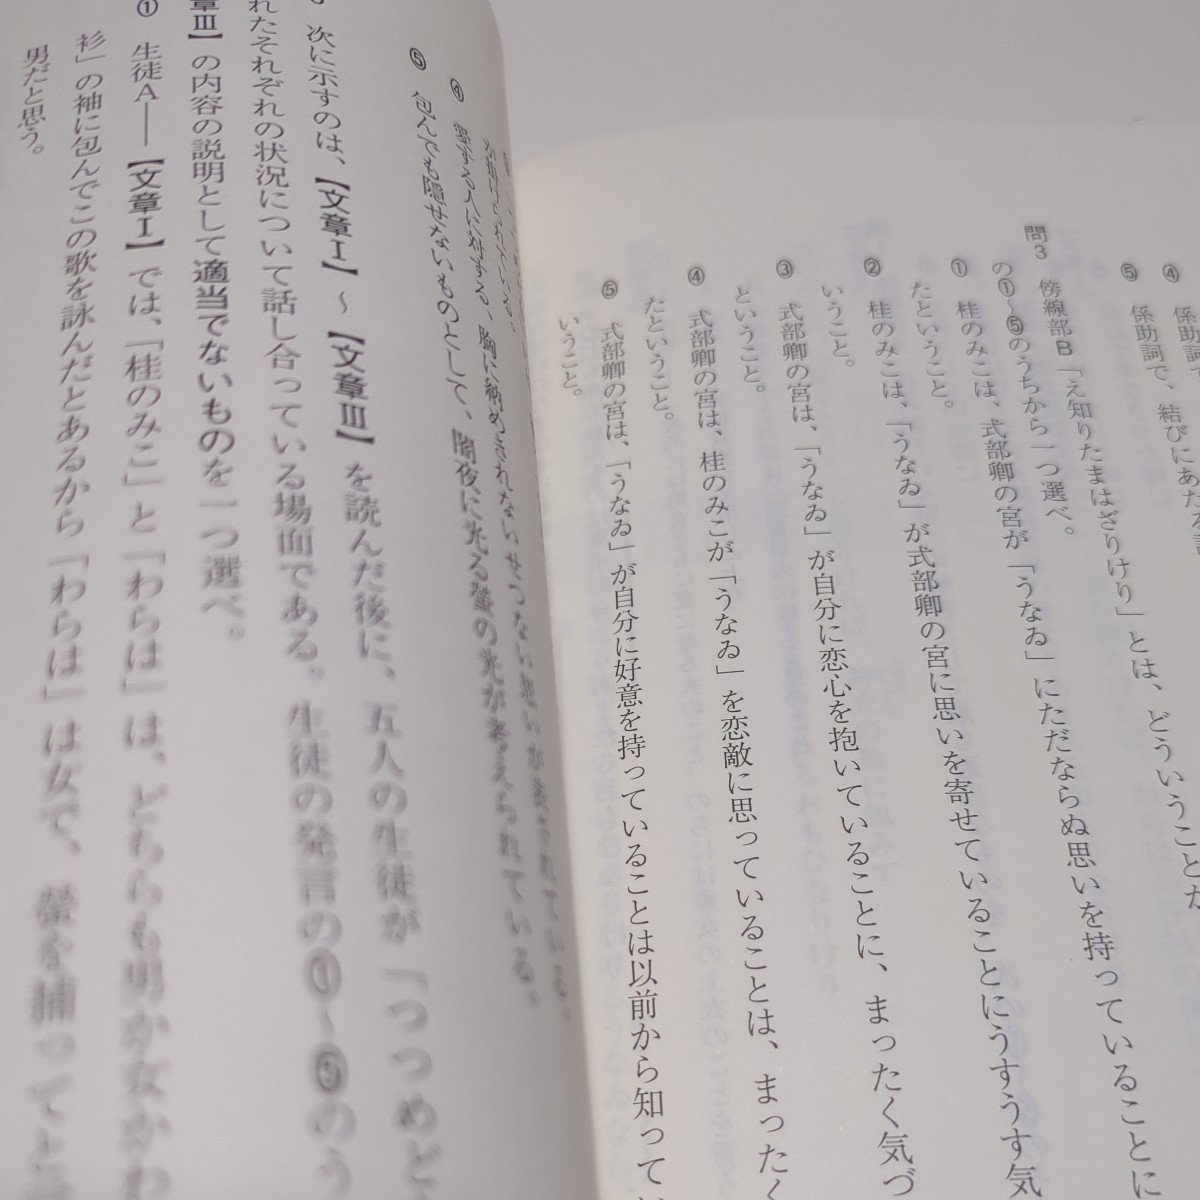 ④ 係助詞で
⑤ 係助詞で、結びにあたる
問3 傍線部B「え知りたまはざりけり」とは、どういうことか
の①～⑤のうちから一つ選べ。
① 桂のみこは、式部卿の宮が「うなゐ」にただならぬ思いを持っていることに
たということ。
② 桂のみこは、「うなゐ」が式部卿の宮に思いを寄せていることにうすうす気
いうこと。
③ 式部卿の宮は、「うなゐ」が自分に恋心を抱いていることに、まったく気づ
ということ。
④ 式部卿の宮は、桂のみこが「うなゐ」を恋敵に思っていることは、まったく
たということ。
⑤ 式部卿の宮は、「うなゐ」が自分に好意を持っていることは以前から知ってい
いうこと。
が掛けられている。
④ 愛する人に対する、胸に納めきれないせつない思いがたとえられている。
⑤ 包んでも隠せないものとして、闇夜に光る蛍の光がたとえられている。
次に示すのは、【文章Ⅰ】～【文章Ⅲ】を読んだ後に、五人の生徒が「つつめど
れたそれぞれの状況について話し合っている場面である。生徒の発言の①～⑤のう
章Ⅲ】の内容の説明として適当でないものを一つ選べ。
① 生徒A――【文章Ⅰ】では、「桂のみこ」と「わらは」は、どちらも男か女かわ
衫」の袖に包んでこの歌を詠んだとあるから「わらは」は女で、蛍を捕ってと
男だと思う。